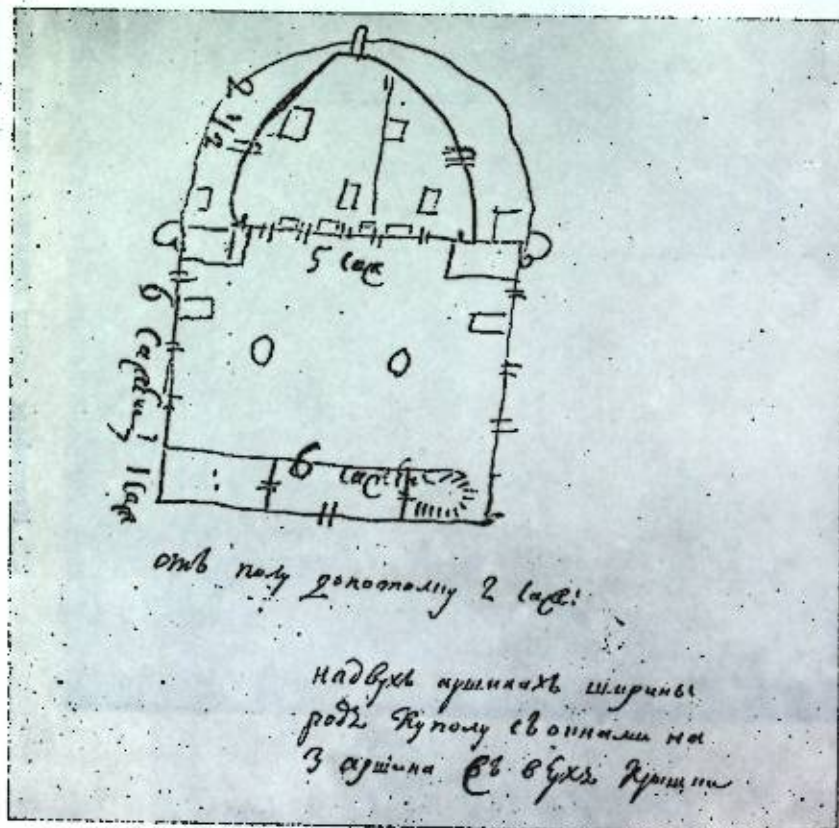 2 1/2
5 саж
6 сажени 1 саж
6 сажен
отъ полу допотолку 2 саж:
надвухъ аршинахъ ширины
родъ куполу съ окнами на
3 аршина въ верхъ крыши